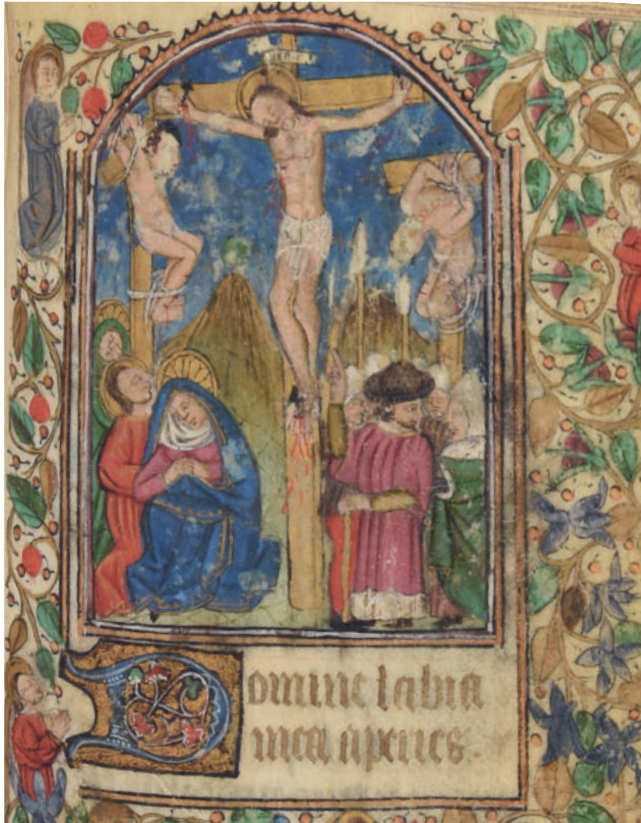 Domine labia
mea aperies.